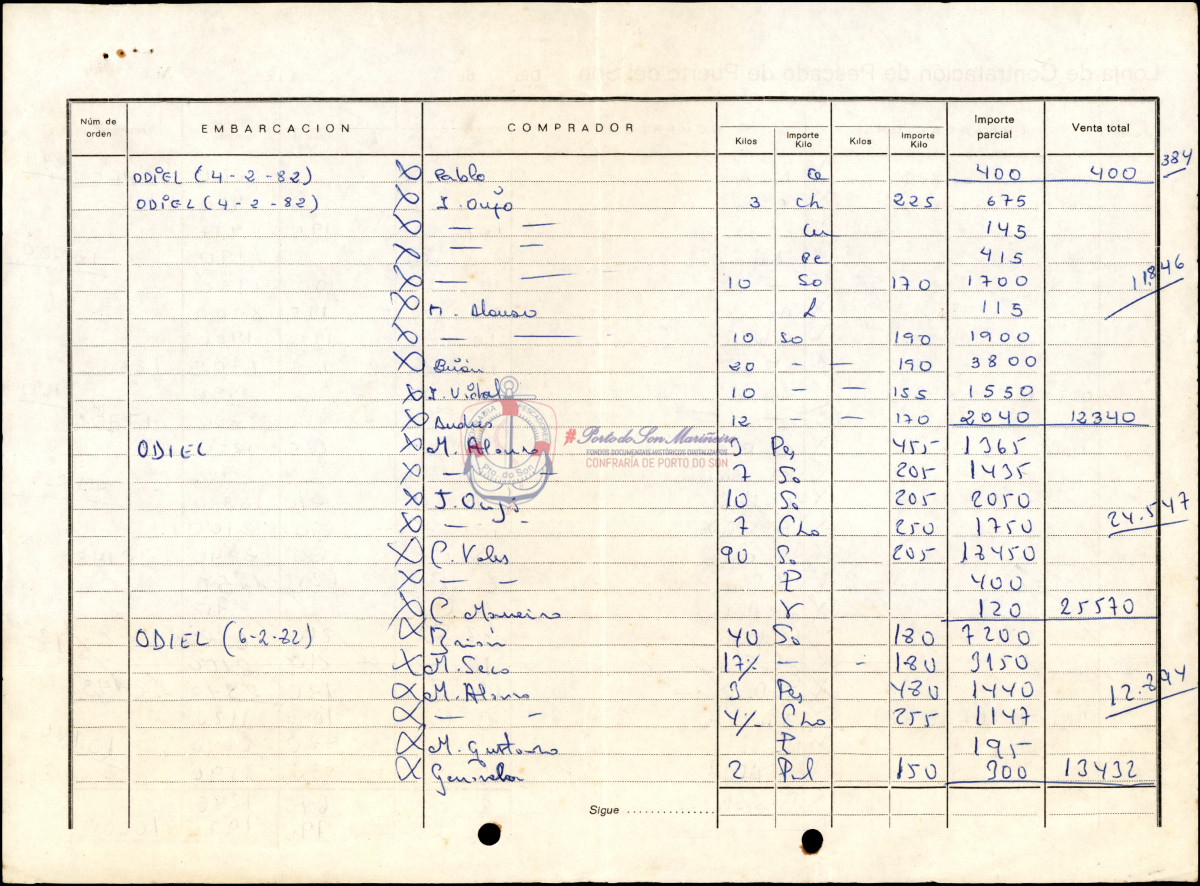 Núm. de orden EMBARCACION COMPRADOR Kilos Importe Kilo Kilos Importe Kilo Importe parcial Venta total
ODIEL (4-2-82) Pablo 400 400 384
ODIEL (4-2-82) J. Oujo 3 Ch 225 675
— — 145
— — 415
— — 10 So 170 1700 11.846
M. Alonso L 115
— — 10 So 190 1900
Brión 20 — — 190 3800
J. Vidal 10 — — 155 1550
Andrés 12 — — 170 2040 12340
ODIEL M. Alonso 3 Pes 455 1365
— — 7 So 205 1435
J. Oujo 10 So 205 2050
— 7 Cho 250 1750 24.547
C. Vales 90 So 205 18450
— — P 400
C. Maneiro r 120 25570
ODIEL (6-2-82) Brión 40 So 180 7200
M. Seco 17½ — - 180 3150
M. Alonso 3 Pes 480 1440 12.894
— — 4½ Cho 255 1147
M. Gustavo P 195
2 Pul 150 300 13432
Sigue ..............
COFRADIA PESCADORES
Pto. do Son
# Porto do Son Mariñeiro
FONDOS DOCUMENTAIS HISTÓRICOS DIGITALIZADOS
CONFRARÍA DE PORTO DO SON